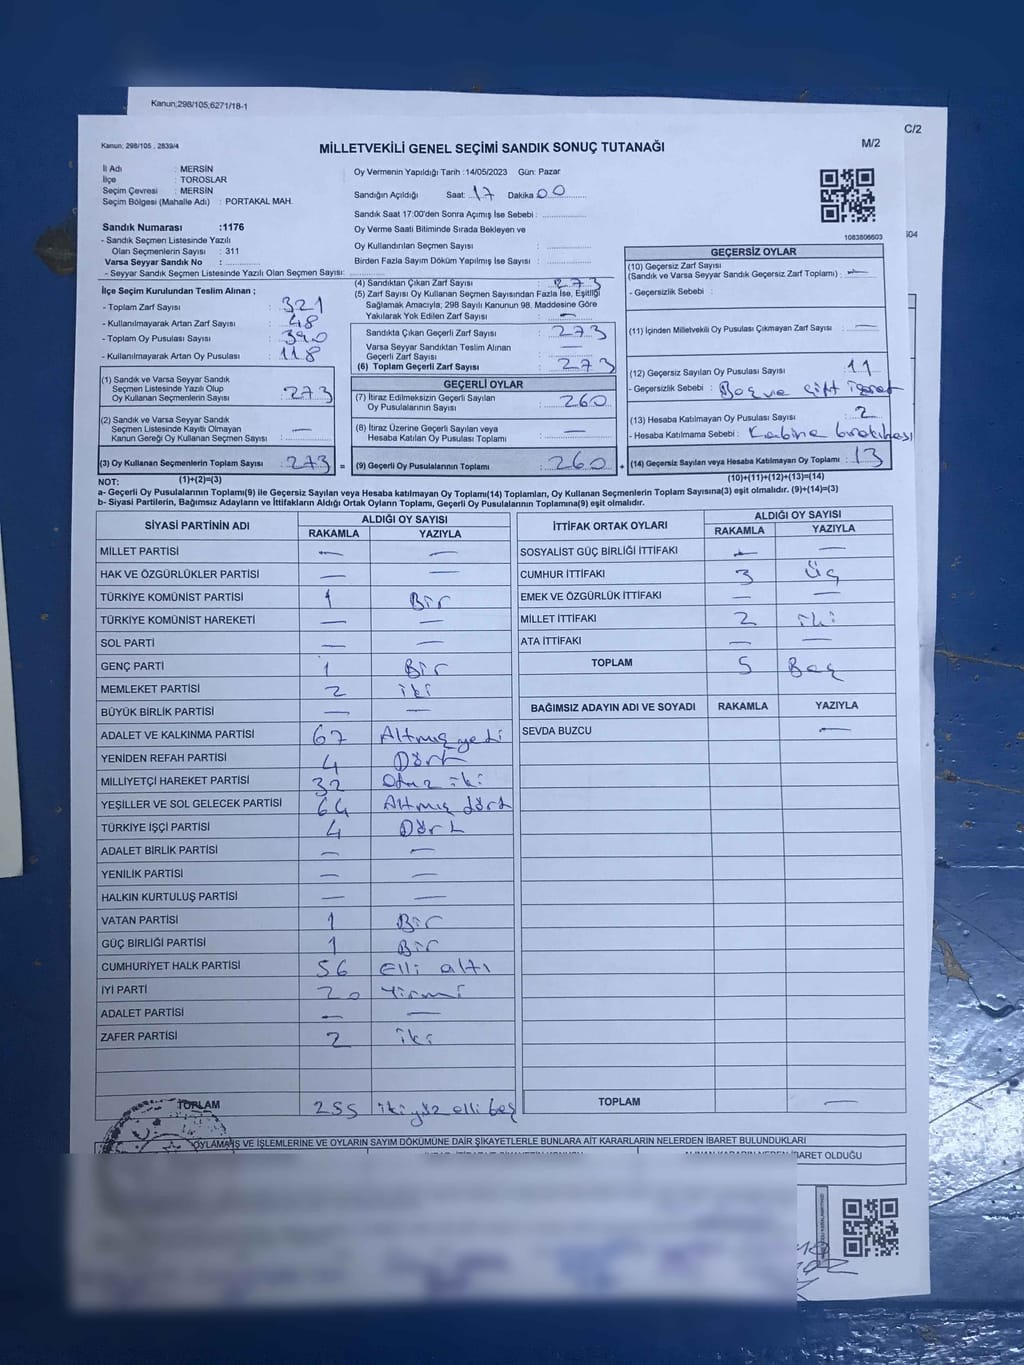 Kanun;298/105,6271/18-1
C/2
Kanun: 298/105 , 2839/4
MİLLETVEKİLİ GENEL SEÇİMİ SANDIK SONUÇ TUTANAĞI
M/2
İl Adı : MERSİN
İlçe : TOROSLAR
Seçim Çevresi : MERSİN
Seçim Bölgesi (Mahalle Adı) : PORTAKAL MAH.
Oy Vermenin Yapıldığı Tarih :14/05/2023 Gün: Pazar
Sandığın Açıldığı Saat: 17 Dakika 00
Sandık Saat 17:00'den Sonra Açmış İse Sebebi :
Sandık Numarası :1176
- Sandık Seçmen Listesinde Yazılı
Olan Seçmenlerin Sayısı : 311
Varsa Seyyar Sandık No :
- Seyyar Sandık Seçmen Listesinde Yazılı Olan Seçmen Sayısı:
Oy Verme Saati Bitiminde Sırada Bekleyen ve
Oy Kullandırılan Seçmen Sayısı :
Birden Fazla Sayım Döküm Yapılmış İse Sayısı :
1083806603
604
İlçe Seçim Kurulundan Teslim Alınan ;
- Toplam Zarf Sayısı : 321
- Kullanılmayarak Artan Zarf Sayısı : 48
- Toplam Oy Pusulası Sayısı : 390
- Kullanılmayarak Artan Oy Pusulası : 118
(1) Sandık ve Varsa Seyyar Sandık
Seçmen Listesinde Yazılı Olup
Oy Kullanan Seçmenlerin Sayısı : 273
(2) Sandık ve Varsa Seyyar Sandık
Seçmen Listesinde Kayıtlı Olmayan
Kanun Gereği Oy Kullanan Seçmen Sayısı : —
(3) Oy Kullanan Seçmenlerin Toplam Sayısı : 273 =
(1)+(2)=(3)
(4) Sandıktan Çıkan Zarf Sayısı : 273
(5) Zarf Sayısı Oy Kullanan Seçmen Sayısından Fazla İse, Eşitliği
Sağlamak Amacıyla; 298 Sayılı Kanunun 98. Maddesine Göre
Yakılarak Yok Edilen Zarf Sayısı : —
Sandıkta Çıkan Geçerli Zarf Sayısı : 273
Varsa Seyyar Sandıktan Teslim Alınan
Geçerli Zarf Sayısı : —
(6) Toplam Geçerli Zarf Sayısı : 273
GEÇERLİ OYLAR
(7) İtiraz Edilmeksizin Geçerli Sayılan
Oy Pusulalarının Sayısı : 260
(8) İtiraz Üzerine Geçerli Sayılan veya
Hesaba Katılan Oy Pusulası Toplamı : —
(9) Geçerli Oy Pusulalarının Toplamı : 260 +
GEÇERSİZ OYLAR
(10) Geçersiz Zarf Sayısı
(Sandık ve Varsa Seyyar Sandık Geçersiz Zarf Toplamı) : —
- Geçersizlik Sebebi :
(11) İçinden Milletvekili Oy Pusulası Çıkmayan Zarf Sayısı : —
(12) Geçersiz Sayılan Oy Pusulası Sayısı : 11
- Geçersizlik Sebebi : Boş ve çift işaret
(13) Hesaba Katılmayan Oy Pusulası Sayısı : 2
- Hesaba Katılmama Sebebi : Kabine bırakılması
(14) Geçersiz Sayılan veya Hesaba Katılmayan Oy Toplamı : 13
(10)+(11)+(12)+(13)=(14)
NOT:
a- Geçerli Oy Pusulalarının Toplamı(9) ile Geçersiz Sayılan veya Hesaba katılmayan Oy Toplamı(14) Toplamları, Oy Kullanan Seçmenlerin Toplam Sayısına(3) eşit olmalıdır. (9)+(14)=(3)
b- Siyasi Partilerin, Bağımsız Adayların ve İttifakların Aldığı Ortak Oyların Toplamı, Geçerli Oy Pusulalarının Toplamına(9) eşit olmalıdır.
SİYASİ PARTİNİN ADI ALDIĞI OY SAYISI
RAKAMLA YAZIYLA
MİLLET PARTİSİ — —
HAK VE ÖZGÜRLÜKLER PARTİSİ — —
TÜRKİYE KOMÜNİST PARTİSİ 1 Bir
TÜRKİYE KOMÜNİST HAREKETİ — —
SOL PARTİ — —
GENÇ PARTİ 1 Bir
MEMLEKET PARTİSİ 2 iki
BÜYÜK BİRLİK PARTİSİ — —
ADALET VE KALKINMA PARTİSİ 67 Altmış yedi
YENİDEN REFAH PARTİSİ 4 Dört
MİLLİYETÇİ HAREKET PARTİSİ 32 Otuz iki
YEŞİLLER VE SOL GELECEK PARTİSİ 64 Altmış dört
TÜRKİYE İŞÇİ PARTİSİ 4 Dört
ADALET BİRLİK PARTİSİ — —
YENİLİK PARTİSİ — —
HALKIN KURTULUŞ PARTİSİ — —
VATAN PARTİSİ 1 Bir
GÜÇ BİRLİĞİ PARTİSİ 1 Bir
CUMHURİYET HALK PARTİSİ 56 elli altı
İYİ PARTİ 20 Yirmi
ADALET PARTİSİ — —
ZAFER PARTİSİ 2 iki
TOPLAM 255 ikiyüz elli beş
İTTİFAK ORTAK OYLARI ALDIĞI OY SAYISI
RAKAMLA YAZIYLA
SOSYALİST GÜÇ BİRLİĞİ İTTİFAKI — —
CUMHUR İTTİFAKI 3 Üç
EMEK VE ÖZGÜRLÜK İTTİFAKI — —
MİLLET İTTİFAKI 2 iki
ATA İTTİFAKI — —
TOPLAM 5 Beş
BAĞIMSIZ ADAYIN ADI VE SOYADI RAKAMLA YAZIYLA
SEVDA BUZCU —
TOPLAM —
OYLAMA İŞ VE İŞLEMLERİNE VE OYLARIN SAYIM DÖKÜMÜNE DAİR ŞİKAYETLERLE BUNLARA AİT KARARLARIN NELERDEN İBARET BULUNDUKLARI
İBARET OLDUĞU